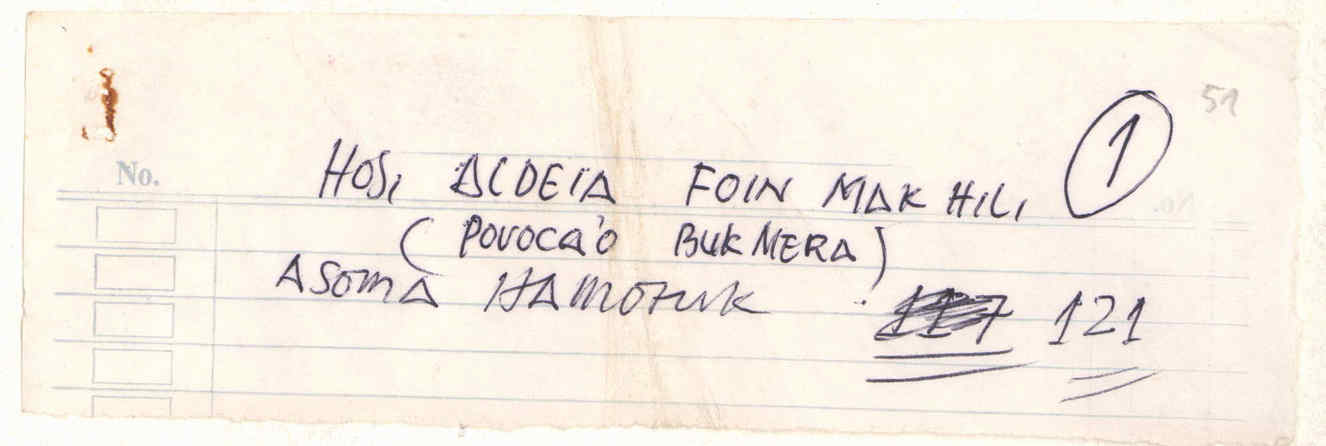 51
1
No.
HOSI ALDEIA FOIN MAK HILI
(POVOCA'O BUKMERA)
ASOMA HAMOTUK : 117 121